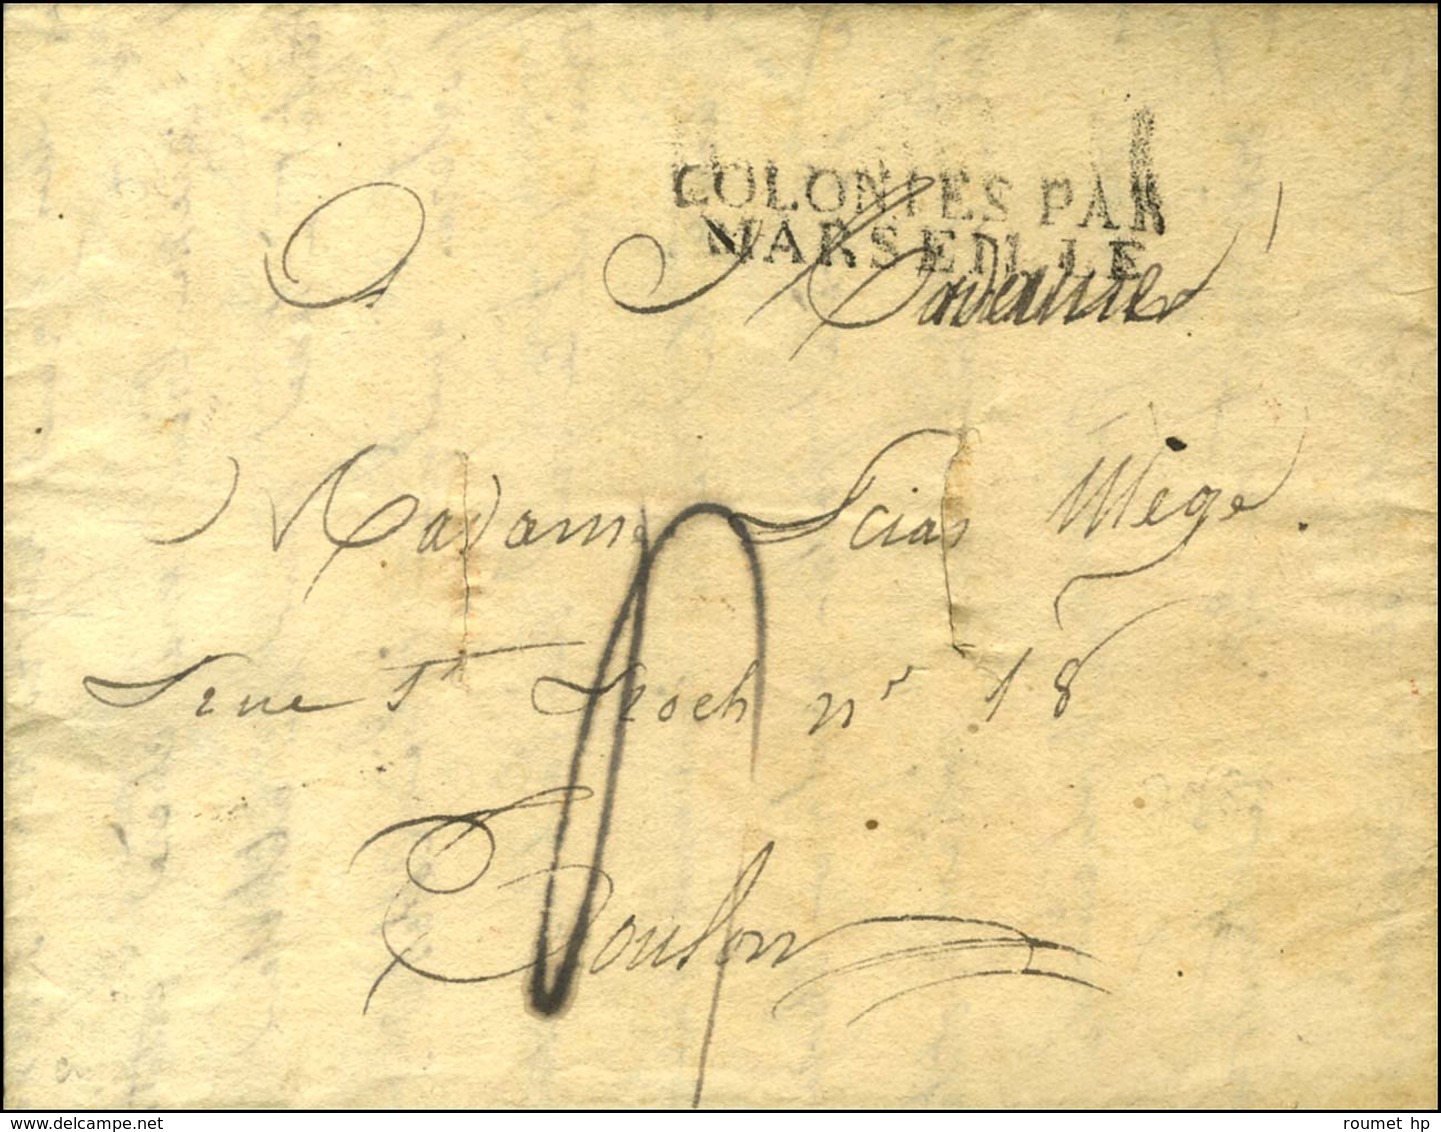 COLONIES PAR
MARSEILLE
A Madame
Madame Scias Mège
rue St Roch nr 18
Toulon
delcampe.net
roumet hp